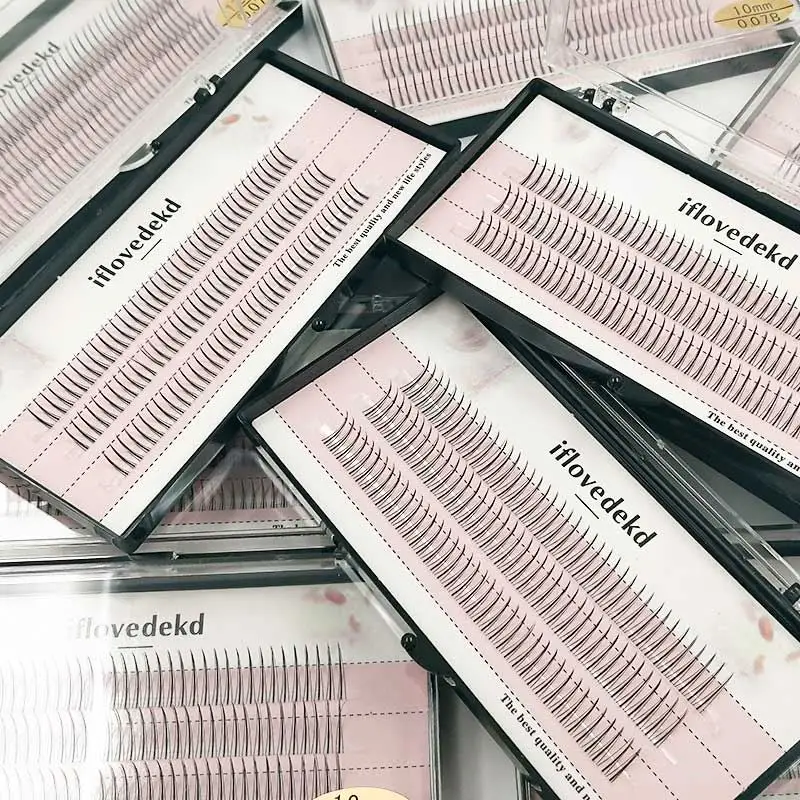 0.07
10mm
0.07B
iflovedekd
The best quality and new life styles
iflovedekd
The best quality an
iflovedekd
The best quality and n
iflovedekd